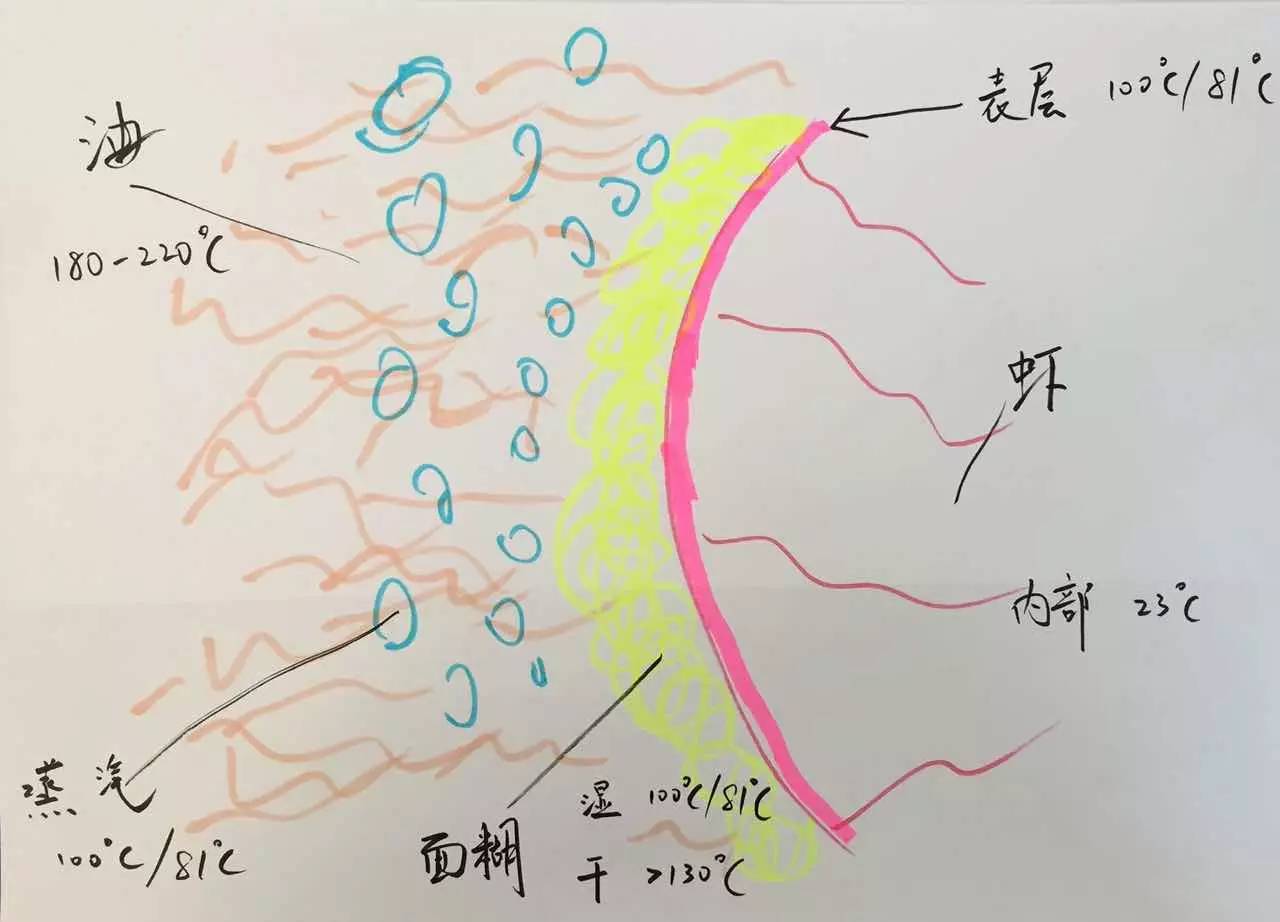 表层 100°C/81°C
油
180-220°C
虾
内部 23°C
蒸汽
100°C/81°C
面糊
湿 100°C/81°C
干 >130°C